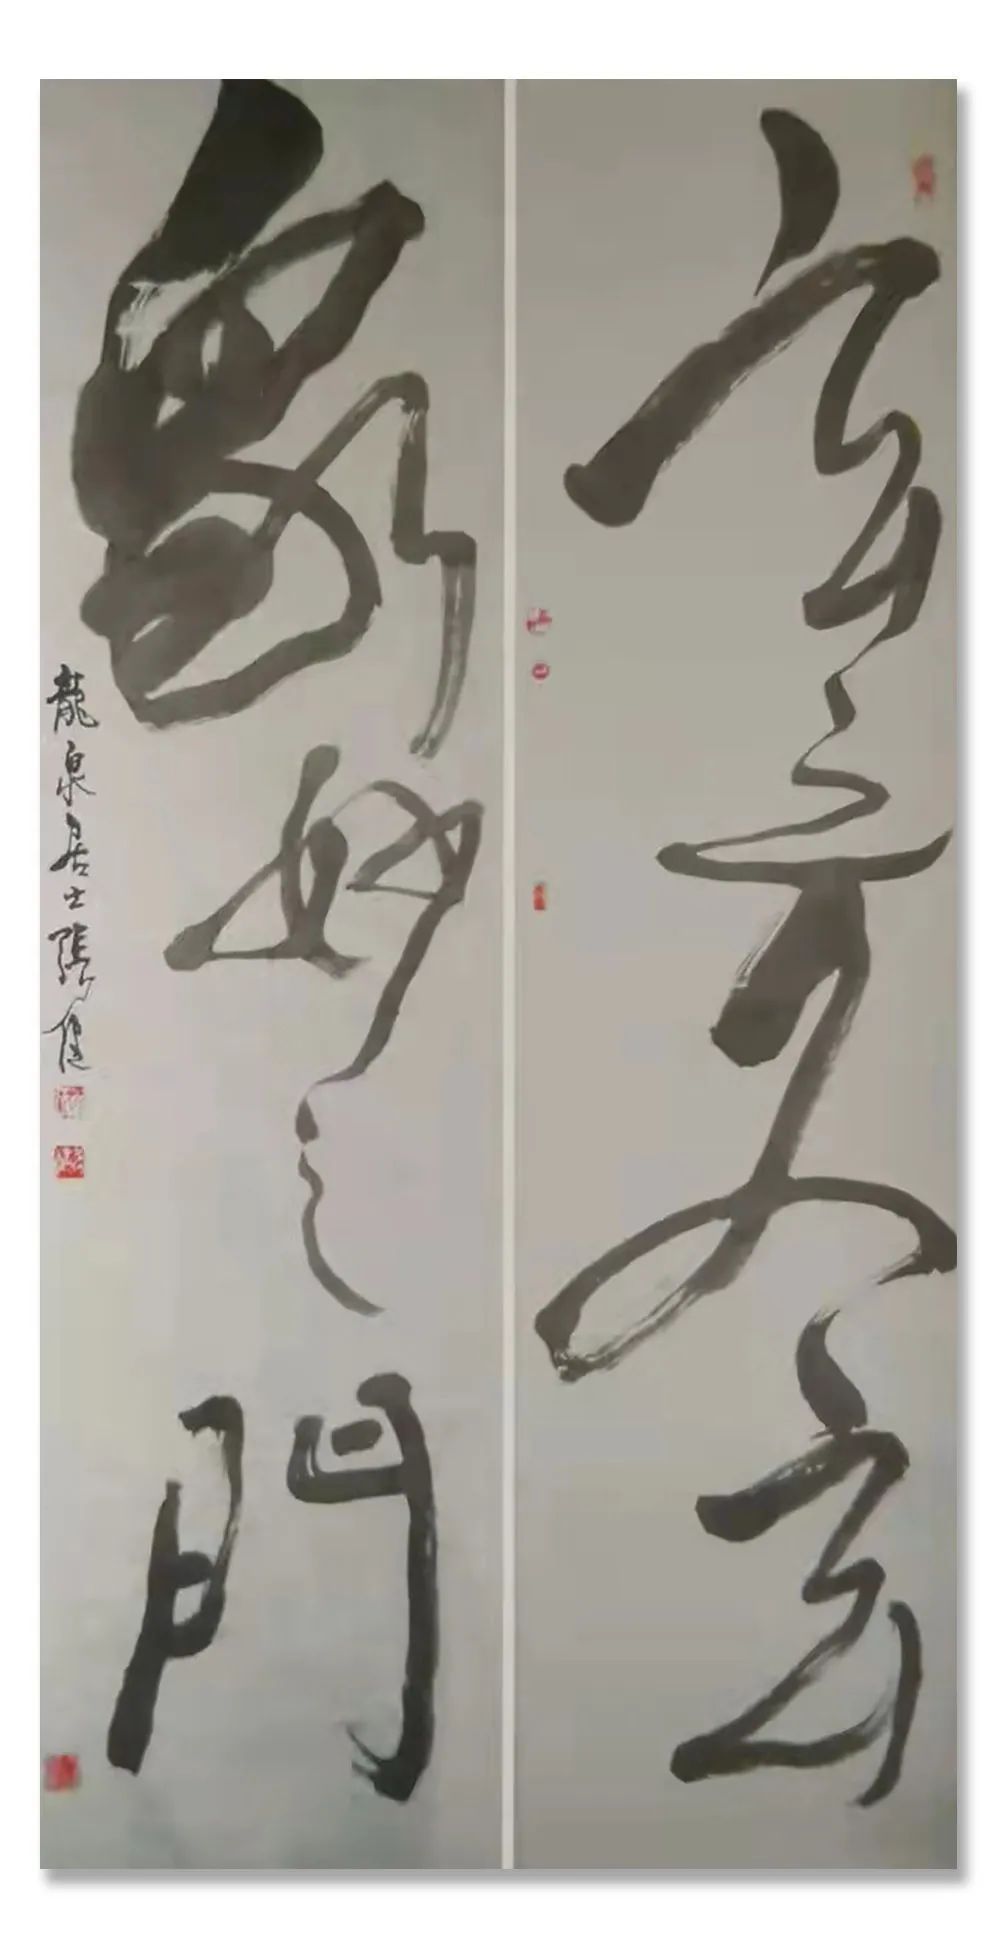 玄之又玄
众妙之门
龍泉居士張健